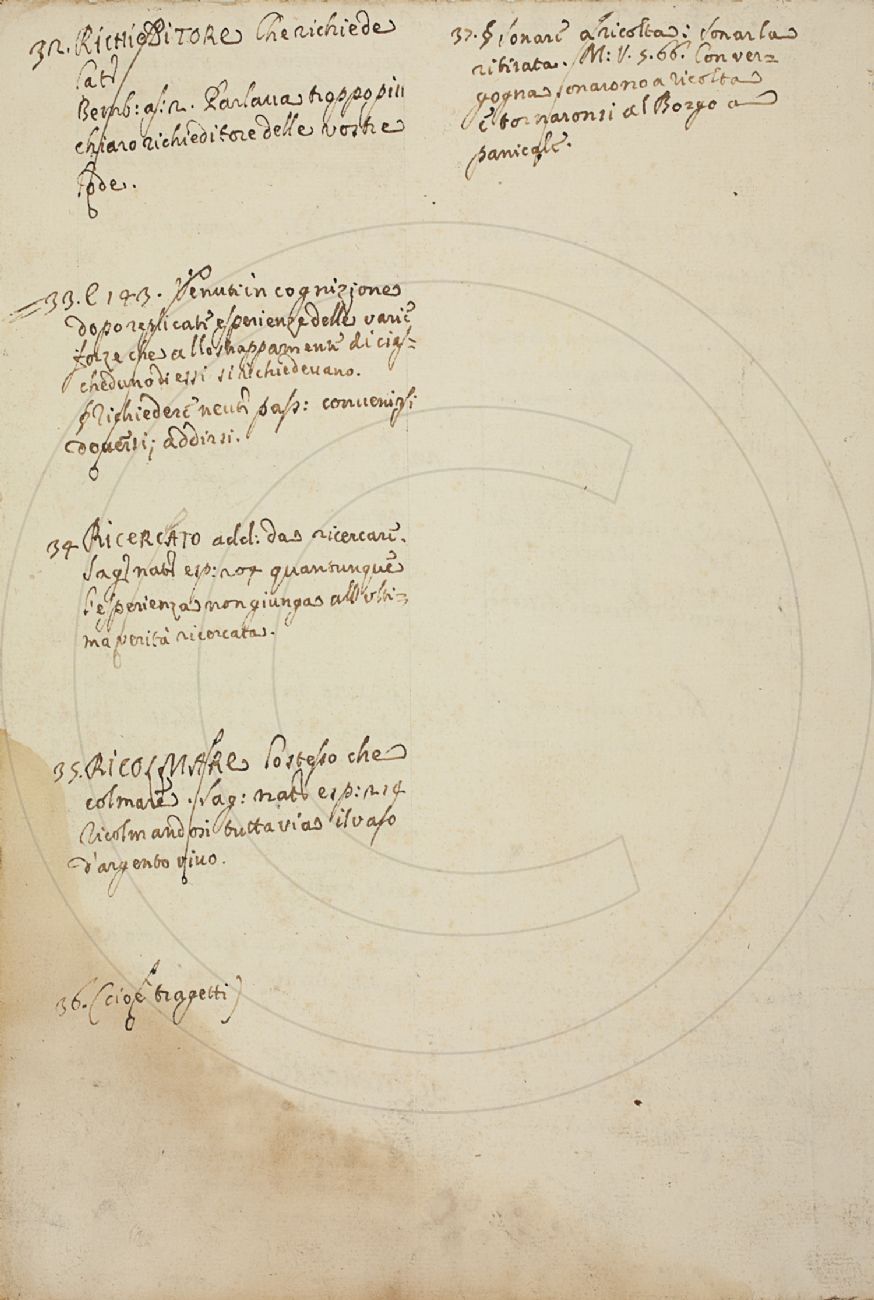 32. RICHIEDITORE Che richiede
Lat.
Bemb: as: 2. Parlava troppo più
chiaro richieditore delle vostre
lode.
33. C 143. Venuti in cognizione
dopo replicate esperienze delle varie
forze che allo strappamento di cias=
cheduno di essi si richiedevano.
§ Richiedere neut. pass: convenirsi
doversi; addirsi.
34 RICERCATO add: da ricercare.
Sag. nat. esp: 204 quantunque
l'esperienza non giunga all'ulti=
ma verità ricercata.
35. RICOLMARE lo stesso che
colmare. Sag: nat. esp: 214
Ricolmandosi tuttavia il vaso
d'argento vivo.
36. (cioè tragetti)
37. § Sonare a ricolta: Sonar la
ritirata. M: V. 5. 66. Con ver=
gogna sonarono a ricolta
e tornaronsi al Borgo a
panicale.